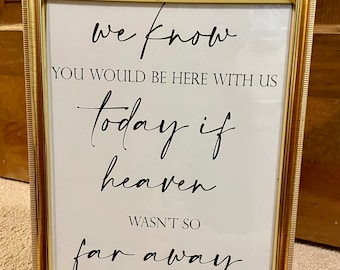 we know
YOU WOULD BE HERE WITH US
today if
heaven
WASN'T SO
far away